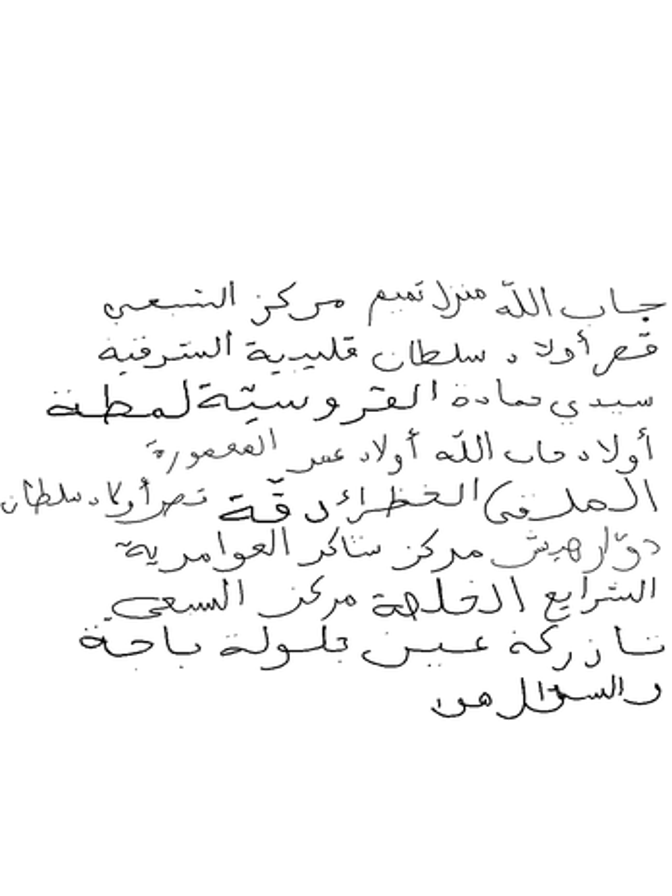 جاب الله منزل تميم مركز الشعبي
قصر أولاد سلطان قليبية الشرفية
سيدي حمادة القروسيّة لمطة
أولاد جاب الله أولاد عمر المعمورة
الملاقى الخظراء دقّة قصر أولاد سلطان
دوّار هيش مركز شاكر العوامرية
الشرايع الخلجة مركز السبعي
تازركة عين جلولة باجة
والسؤال هن